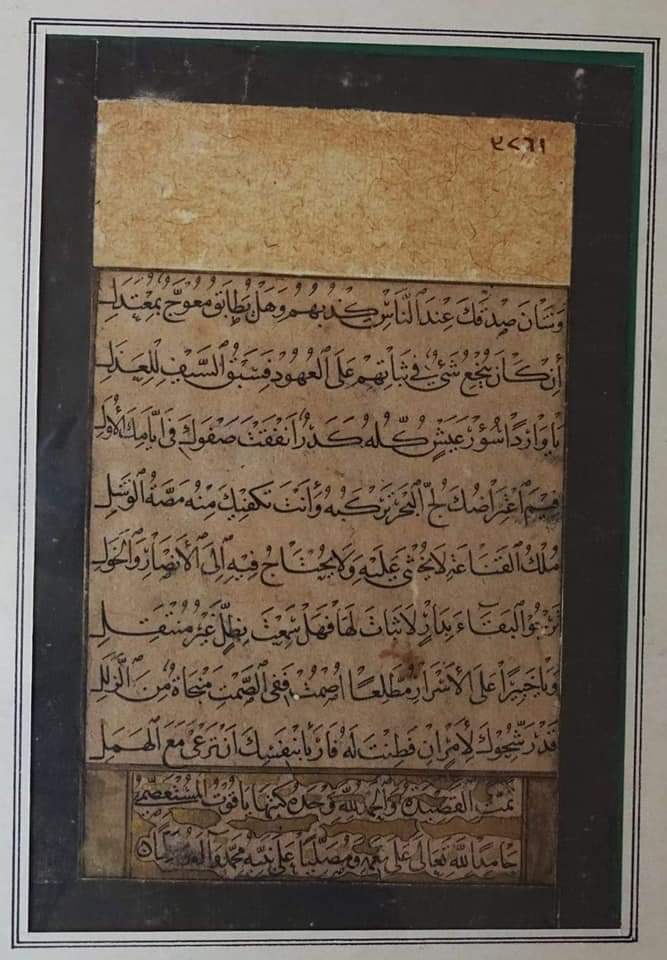 وَشَانَ صِدْقَكَ عِنْدَ النَّاسِ كِذْبُهُمُ وَهَلْ يُطَابَقُ مُعْوَجٌّ بِمُعْتَدِلِ
إِنْ كَانَ يَنْجَعُ شَيْءٌ فِي ثَبَاتِهِمْ عَلَى الْعُهُودِ فَسَبْقُ السَّيْفِ لِلْعَذَلِ
يَا وَارِدًا سُؤْرَ عَيْشٍ كُلُّهُ كَدَرٌ أَنْفَقْتَ صَفْوَكَ فِي أَيَّامِكَ الْأُوَلِ
فِيمَ اعْتِرَاضُكَ لُجَّ الْبَحْرِ تَرْكَبُهُ وَأَنْتَ تَكْفِيكَ مِنْهُ مَصَّةُ الْوَشَلِ
مُلْكُ الْقَنَاعَةِ لَا يُخْشَى عَلَيْهِ وَلَا يُحْتَاجُ فِيهِ إِلَى الْأَنْصَارِ وَالْخَوَلِ
تَرْجُو الْبَقَاءَ بِدَارٍ لَا ثَبَاتَ لَهَا فَهَلْ سَمِعْتَ بِظِلٍّ غَيْرِ مُنْتَقِلِ
وَيَا خَبِيرًا عَلَى الْأَسْرَارِ مُطَّلِعًا اصْمُتْ فَفِي الصَّمْتِ مَنْجَاةٌ مِنَ الزَّلَلِ
قَدْ رَشَّحُوكَ لِأَمْرٍ إِنْ فَطِنْتَ لَهُ فَارْبَأْ بِنَفْسِكَ أَنْ تَرْعَى مَعَ الْهَمَلِ
تمت القصيدة والحمد لله وحده كتبها ياقوت المستعصمي
حامدا لله تعالى على نعمه ومصليا على نبيه محمد وآله